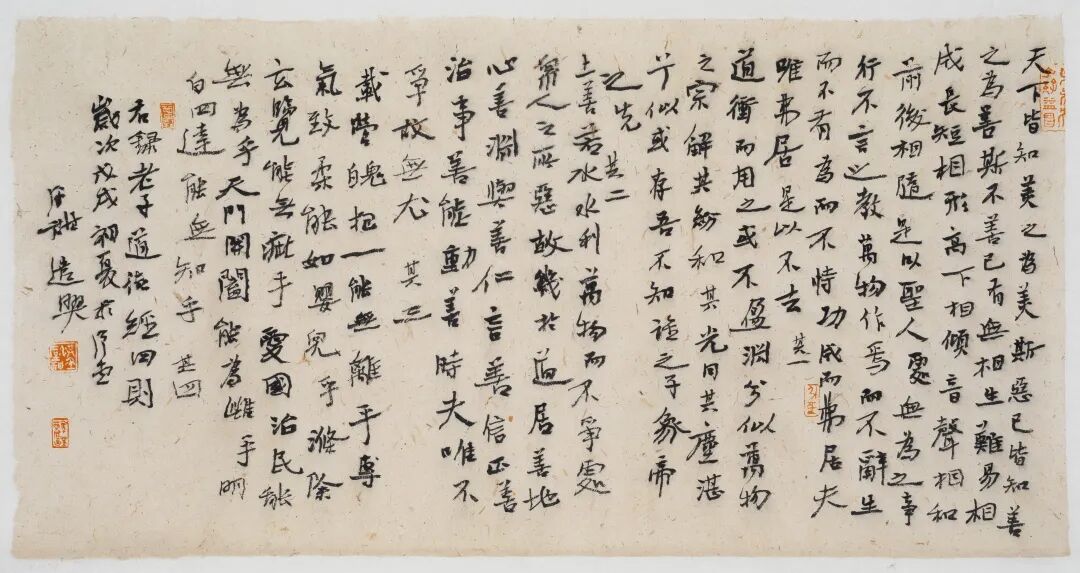 天下皆知美之為美斯惡已皆知善
之為善斯不善已有無相生難易相
成長短相形高下相傾音聲相和
前後相隨是以聖人處無為之事
行不言之教萬物作焉而不辭生
而不有為而不恃功成而弗居夫
唯弗居是以不去 其一
道衝而用之或不盈淵兮似萬物
之宗解其紛和其光同其塵湛
兮似或存吾不知誰之子象帝
之先 其二
上善若水水利萬物而不爭處
衆人之所惡故幾於道居善地
心善淵與善仁言善信正善
治事善能動善時夫唯不
爭故無尤 其三
載營魄抱一能無離乎專
氣致柔能如嬰兒乎滌除
玄覽能無疵乎愛國治民能
無為乎天門開闔能為雌乎明
白四達能無知乎 其四
右錄老子道德經四則
歲次戊戌初夏於
造興